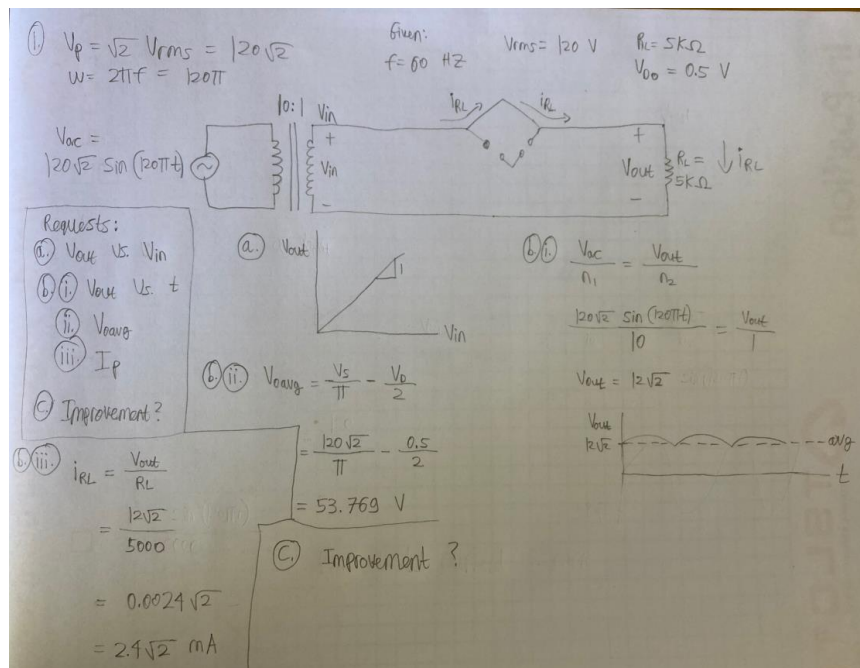 ① Vp = √2 Vrms = 120√2
w = 2πf = 120π
Given:
f = 60 HZ
Vrms = 120 V
RL = 5KΩ
VDo = 0.5 V
Vac =
120√2 sin(120πt)
10:1
Vin
+
Vin
-
iRL
iRL
+
Vout
-
RL =
5KΩ
iRL
Requests:
ⓐ Vout Vs. Vin
ⓑ ⓘ Vout Vs. t
ⓘⓘ Voavg
ⓘⓘⓘ Ip
ⓒ Improvement?
ⓐ Vout
1
Vin
ⓑ ⓘ Vac/n1 = Vout/n2
120√2 sin(120πt)/10 = Vout/1
Vout = 12√2
Vout
12√2
avg
t
ⓑ ii. Voavg = Vs/π - VD/2
= 120√2/π - 0.5/2
= 53.769 V
ⓑ iii. iRL = Vout/RL
= 12√2/5000
= 0.0024√2
= 2.4√2 mA
ⓒ Improvement ?